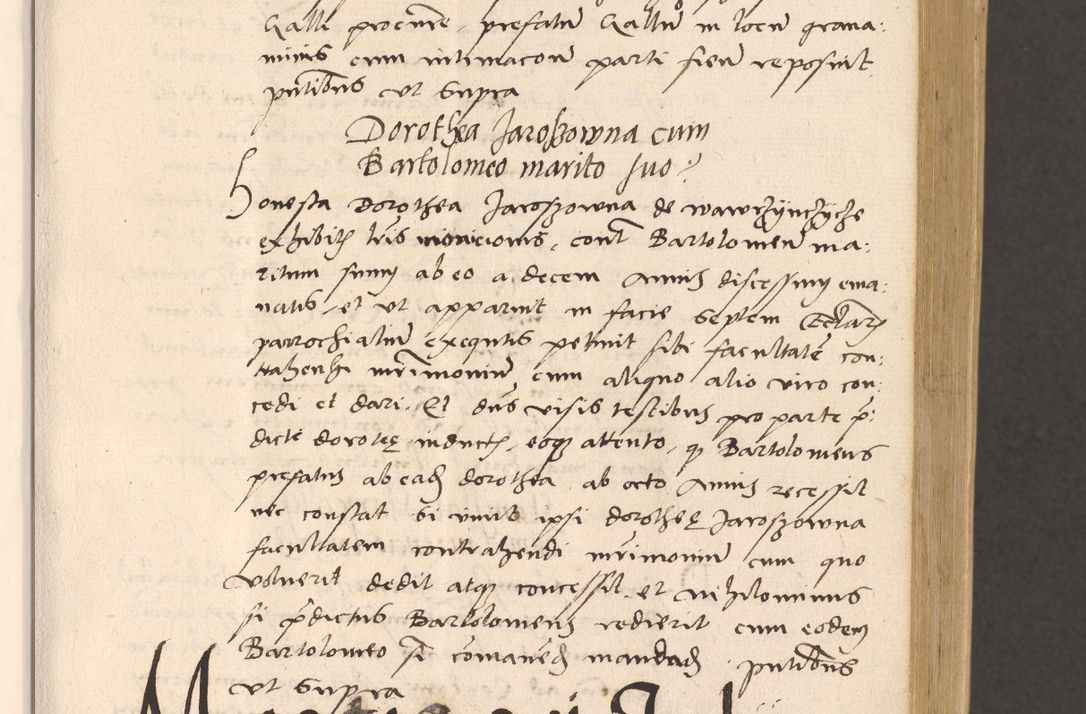 Galli procure. prefatum Gallum in locum grana:
minis cum intimacone parti fieri reposuit
pntibus ut supra
Dorothea Jaroszowna cum
Bartolomeo marito suo
Honesta Dorothea Jaroszowna de wawrzynczycze
exhibitis lris monicionis, contra Bartolomeum ma:
ritum suum ab eo a decem annis discessum ema:
natis, et ut apparuit in facie septem Ecclarum
parrochialium exequutis petiuit sibi facultatem con:
trahendi mrimonium cum aliquo alio viro con:
cedi et dari. Et dns visis testibus pro parte p:
dicte dorotee inductis, eoque attento, q Bartolomeus
prefatus ab eadem dorothea ab octo annis recessit
nec constat si vivit ipsi dorothee Jaroszowna
facultatem contrahendi mrimonium cum quo
voluerit dedit atque concessit, et nihilominus
si pdictus Bartolomeus redierit cum eodem
Bartolomeo comanendum mandandum pntibus
ut supra